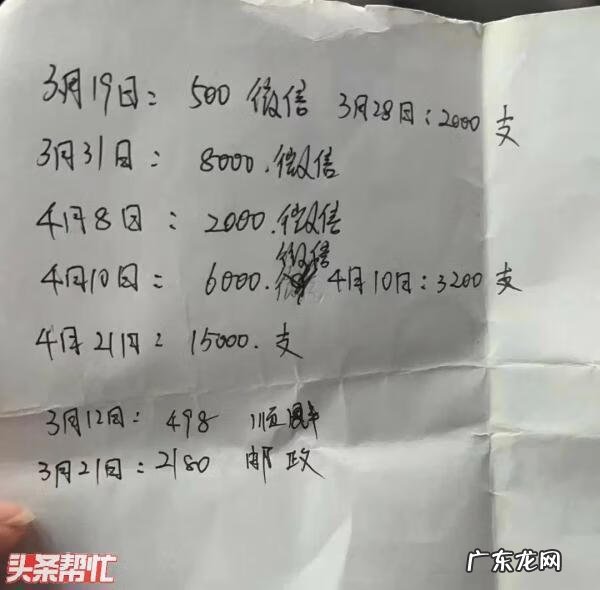 3月19日: 500 微信 3月28日:2000 支
3月31日: 8000.微信
4月8日: 2000.微信
微信
4月10日: 6000. 4月10日:3200 支
4月21日: 15000.支
3月12日: 498 顺丰
3月21日:2180 邮政
头条帮忙
广东龙网